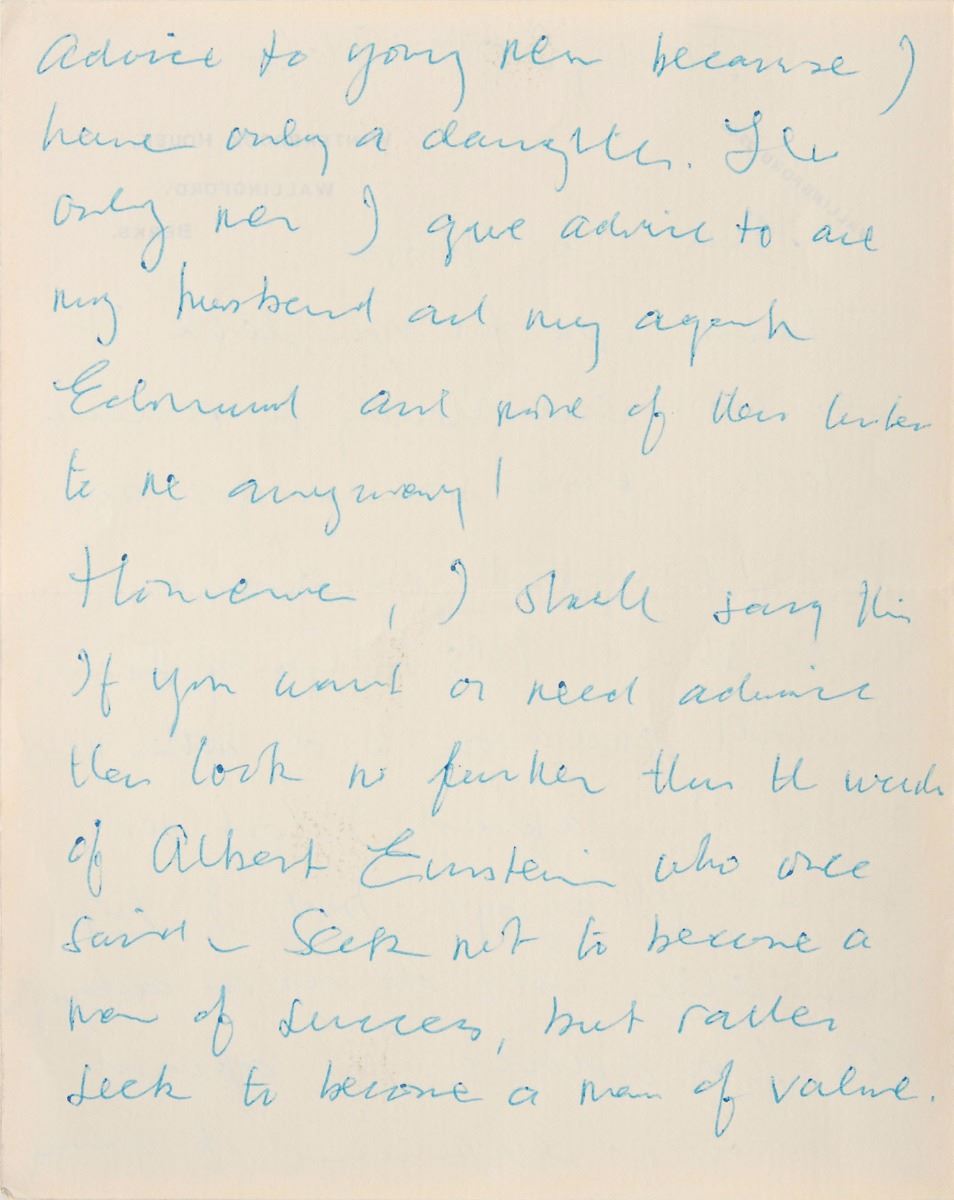 Advice to young men because I
have only a daughter. The
only men I give advice to are
my husband and my agent
Edmund and none of them listen
to me anyway!
However, I shall say this
If you want or need advice
then look no further than the words
of Albert Einstein who once
said - Seek not to become a
man of success, but rather
seek to become a man of value.
WINTERBROOK HOUSE,
WALLINGFORD,
BERKS.